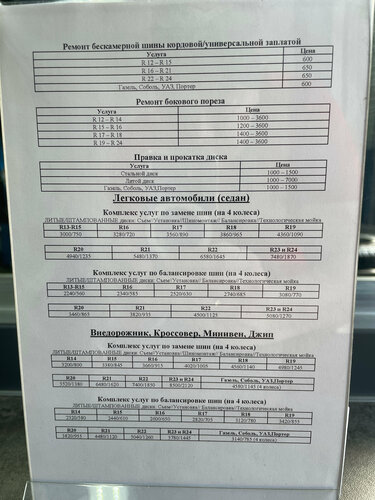 Ремонт бескамерной шины кордовой/универсальной заплатой
Услуга Цена
R 12 – R 15 600
R 16 – R 21 650
R 22 – R 24 650
Газель, Соболь, УАЗ, Портер 600
Ремонт бокового пореза
Услуга Цена
R 12 – R 14 1000 – 3600
R 15 – R 16 1200 – 3600
R 17 – R 18 1400 – 3600
R 19 – R 24 1400 – 3600
Правка и прокатка диска
Услуга Цена
Стальной диск 1000 – 1500
Литой диск 1000 – 7000
Газель, Соболь, УАЗ,Портер 1000 – 1500
Легковые автомобили (седан)
Комплекс услуг по замене шин (на 4 колеса)
ЛИТЫЕ/ШТАМПОВАННЫЕ диски: Съем/Установка//Шиномонтаж// Балансировка//Технологическая мойка
R13-R15 R16 R17 R18 R19
3000/750 3280/720 3560/890 3860/965 4360/1090
R20 R21 R22 R23 и R24
4940/1235 5480/1370 6580/1645 7480/1870
Комплекс услуг по балансировке шин (на 4 колеса)
ЛИТЫЕ/ШТАМПОВАННЫЕ диски: Съем/Установка// Балансировка//Технологическая мойка
R13-R15 R16 R17 R18 R19
2240/560 2340/585 2520/630 2740/685 3080/770
R20 R21 R22 R23 и R24
3460/865 3820/955 4500/1125 5080/1270
Внедорожник, Кроссовер, Минивен, Джип
Комплекс услуг по замене шин (на 4 колеса)
ЛИТЫЕ/ШТАМПОВАННЫЕ диски: Съем/Установка//Шиномонтаж// Балансировка//Технологическая мойка
R14 R15 R16 R17 R18 R19
3200/800 3380/845 3660/915 4020/1005 4560/1140 4980/1245
R20 R21 R22 R23 и R24 Газель, Соболь, УАЗ,Портер
5520/1380 6480/1620 7400/1850 8500/2120 4580/1145 (4 колеса)
Комплекс услуг по балансировке шин (на 4 колеса)
ЛИТЫЕ/ШТАМПОВАННЫЕ диски: Съем/Установка// Балансировка//Технологическая мойка
R14 R15 R16 R17 R18 R19
2320/580 2440/610 2600/650 2820/705 3120/780 3420/855
R20 R21 R22 R23 и R24 Газель, Соболь, УАЗ,Портер
3820/955 4480/1120 5040/1260 5780/1445 3140/785 (4 колеса)